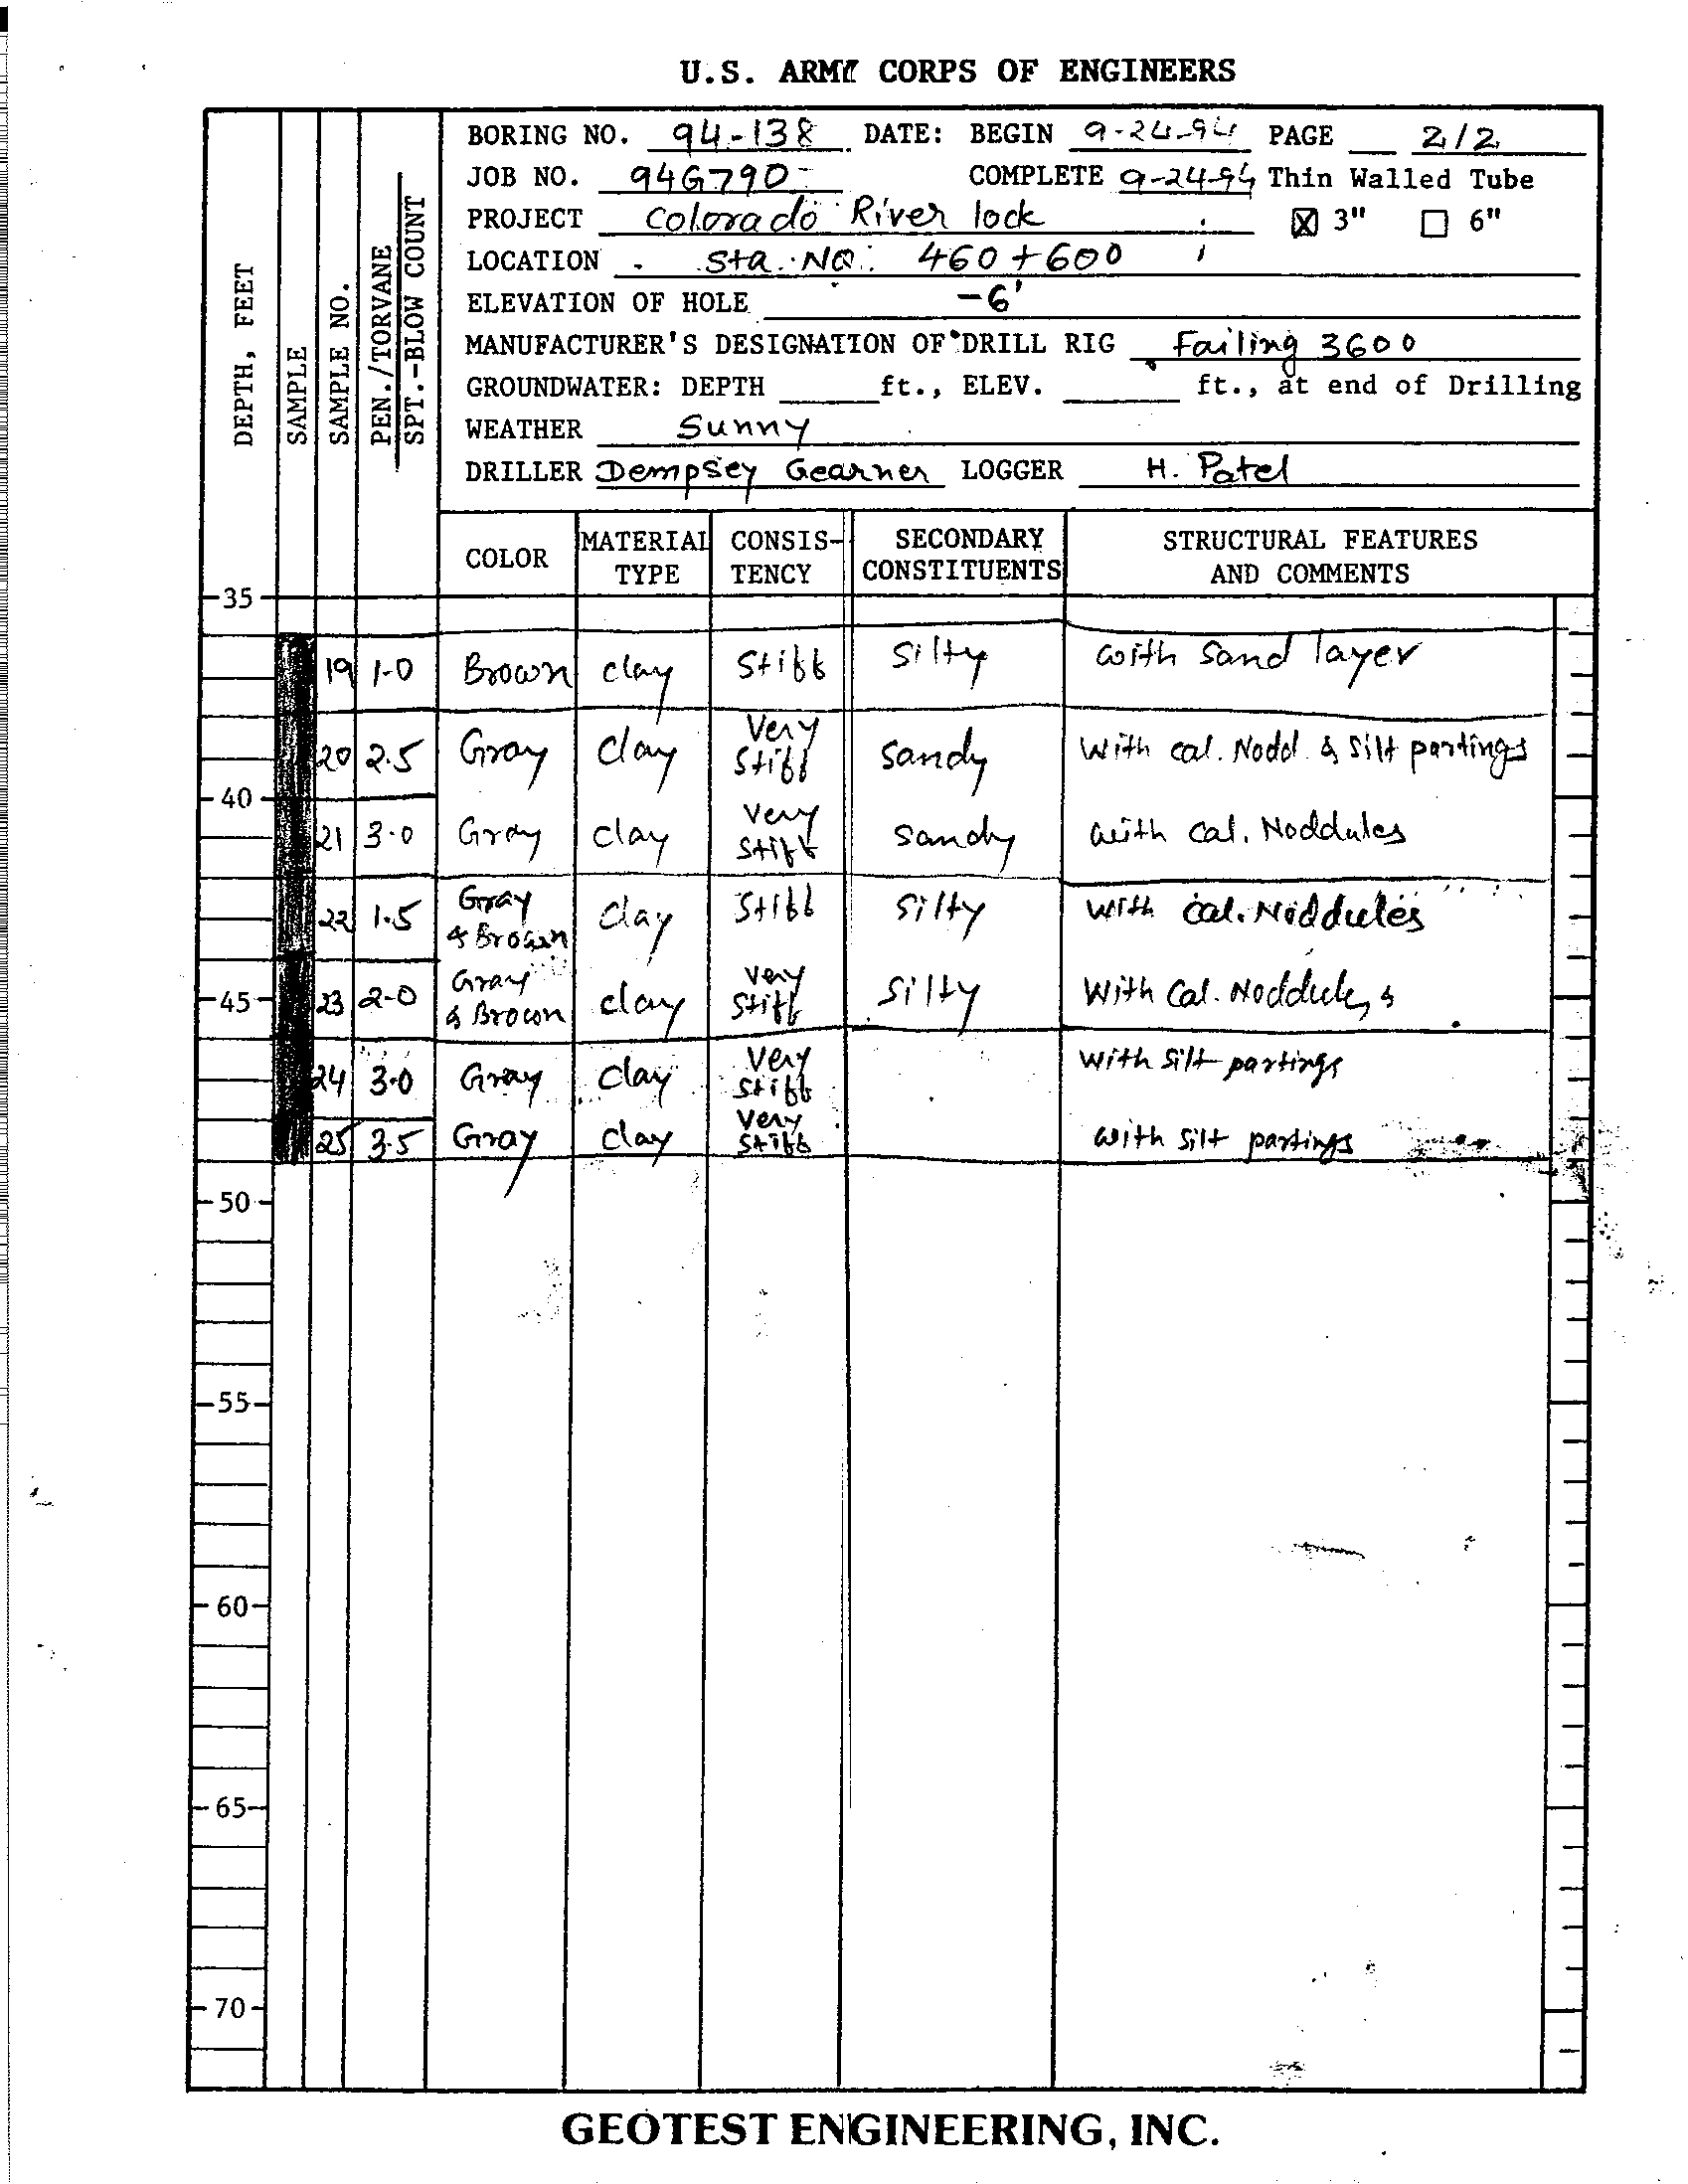 U.S. ARMY CORPS OF ENGINEERS
DEPTH, FEET
SAMPLE
SAMPLE NO.
PEN./TORVANE
SPT.-BLOW COUNT
BORING NO. 94-138 DATE: BEGIN 9-24-94 PAGE 2/2
JOB NO. 94G790 COMPLETE 9-24-94 Thin Walled Tube
PROJECT Colorado River lock ☒ 3" ☐ 6"
LOCATION Sta. No. 460+600
ELEVATION OF HOLE -6'
MANUFACTURER'S DESIGNATION OF DRILL RIG Failing 3600
GROUNDWATER: DEPTH ft., ELEV. ft., at end of Drilling
WEATHER Sunny
DRILLER Dempsey Gearner LOGGER H. Patel
COLOR MATERIAL TYPE CONSIS-TENCY SECONDARY CONSTITUENTS STRUCTURAL FEATURES AND COMMENTS
35
19 1.0 Brown clay Stiff Silty with Sand layer
20 2.5 Gray Clay Very Stiff Sandy With cal. Nodd. & Silt partings
40
21 3.0 Gray clay Very Stiff Sandy with cal. Noddules
22 1.5 Gray & Brown clay Stiff Silty with cal. Noddules
45
23 2.0 Gray & Brown clay Very Stiff Silty With Cal. Noddules
24 3.0 Gray Clay Very Stiff with Silt partings
25 3.5 Gray Clay Very Stiff with silt partings
50
55
60
65
70
GEOTEST ENGINEERING, INC.